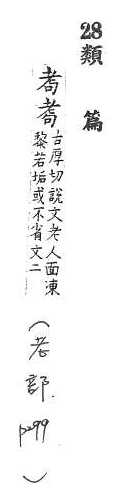 28 類篇
耇耈古厚切說文老人面凍
黎若垢或不省文二
(老部. p299)